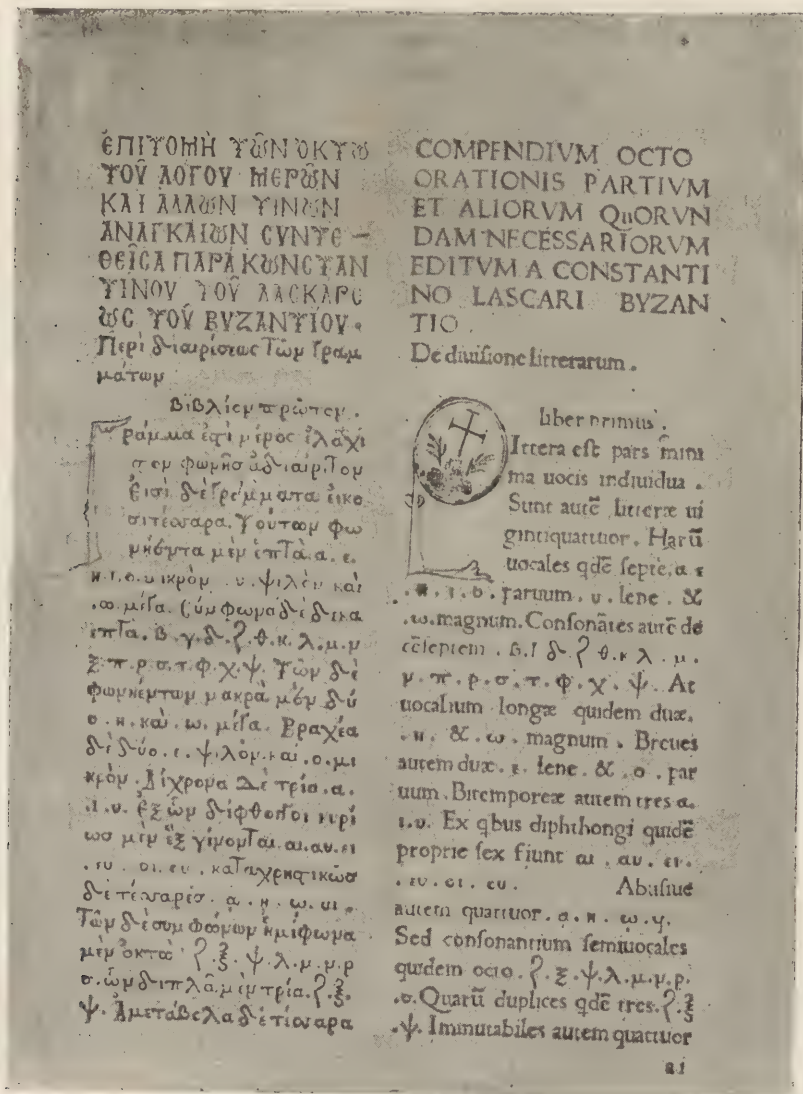 ΕΠΙΤΟΜΗ ΤΩ͂Ν ὈΚΤΩ
ΤΟΥ͂ ΛΟΓΟΥ ΜΕΡΩ͂Ν
ΚΑΙ ἈΛΛΩΝ ΤΙΝΩΝ
ἈΝΑΓΚΑΙΩΝ CΥΝΤΕ-
ΘΕΙ͂CΑ ΠΑΡᾺ ΚΩΝCΤΑΝ
ΤΙΝΟΥ ΤΟΥ͂ ΛΑCΚΑΡΕ
ΩC ΤΟΥ͂ ΒΥΖΑΝΤΙΟΥ.
Περὶ διαιρίσεως Τῶν Γραμ
μάτων
Βιβλίον πρῶτον.
ραμμα ἐστὶ μέρος ἐλάχι
στον φωνῆσ ἀδιαίρετον
Ἐισὶ δὲ γράμματα ἐικο
σιτέσσαρα. Τούτων φω
νήεντα μὲν ἑπτὰ. α. ε.
η. ι. ο. μικρὸν . υ. ψιλὸν καὶ
.ω. μέγα. Σύμφωνα δὲ δεκα
επτὰ. β. γ. δ. ζ. θ. κ. λ. μ. ν
ξ. π. ρ. σ. τ. φ. χ. ψ. Τῶν δὲ
φωνηέντων μακρὰ μὲν δύ
ο. η. καὶ. ω. μέγα. Βραχέα
δὲ δύο. ε. ψιλὸν. καὶ. ο. μι
κρὸν. Δίχρονα Δὲ τρία. α.
.ι. υ. Ἐξ ὧν δίφθογγοι κυρί
ωσ μὲν ἓξ γίνονται. αι. αυ. ει
. ευ . οι. ου. καταχρηστικῶσ
δὲ τέσσαρες. ᾳ. ῃ. ῳ. υι.
Τῶν δὲ συμφώνων ἡμίφωνα
μὲν ὀκτὼ ζ. ξ. ψ. λ. μ. ν. ρ
σ. ὧν διπλᾶ μὲν τρία. ζ. ξ.
ψ. Ἀμετάβολα δὲ τέσσαρα
COMPENDIVM OCTO
ORATIONIS PARTIVM
ET ALIORVM QuORVN
DAM NECESSARIORVM
EDITVM A CONSTANTI
NO LASCARI BYZAN
TIO.
De diuisione litterarum.
liber primus.
Ittera est pars mini
ma uocis indiuidua .
Sunt autē litteræ ui
gintiquattuor. Harū
uocales qdē septē, α ε
. η . ι . ο . paruum. υ. lene . &
.ω. magnum. Consonātes autē de
cēseptem . β. Γ δ. ζ θ. κ λ . μ .
ν . π . ρ . σ . τ . φ . χ . ψ . At
uocalium longæ quidem duæ.
. η . &. ω . magnum . Breues
autem duæ . ε . lene . & . ο . par
uum. Bitemporeæ autem tres α.
ι. υ. Ex qbus diphthongi quidē
proprie sex fiunt αι . αυ . ει.
. ευ . οι . ου . Abusiue
autem quattuor. ᾳ. ῃ . ῳ . υι.
Sed consonantium semiuocales
quidem octo . ζ. ξ. ψ. λ. μ. ν. ρ.
.σ. Quarū duplices qdē tres. ζ. ξ
.ψ. Immutabiles autem quattuor
a1